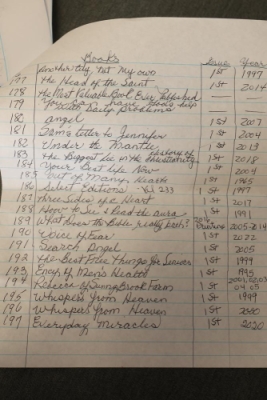 Books Issue Year
Another City, Not My own 1st 1997
177 The Head of the Saint 1st 2014
178 The Most Valuable Book Ever Published
179 Have Books help
With Daily Problems
180 angel 1st 2007
181 Sam's Letter to Jennifer 1st 2004
182 Under the Mantle 1st 2013
183 The Biggest Lie in the History of Christianity 1st 2018
184 Your Best Life Now 1st 2004
185 Out of Many Hearts 1st 1965
186 Select Editions Vol 233 1st 1997
187 Three Sides of a Heart 1st 2017
188 How to See & Read the aura 1st 1991
189 What Does the Bible really teach? 2005-2014
190 Voice of Fear 1st 2022
191 Search Angel 1st 2005
192 The Best Else Things for Seniors 1st 1999
193 Ency of Men's Health 1st 1995
194 Rebecca of Sunnybrook Farm
195 Whispers from Heaven 1st 1999
196 Whispers from Heaven 1st
197 Everyday Miracles 1st 2020